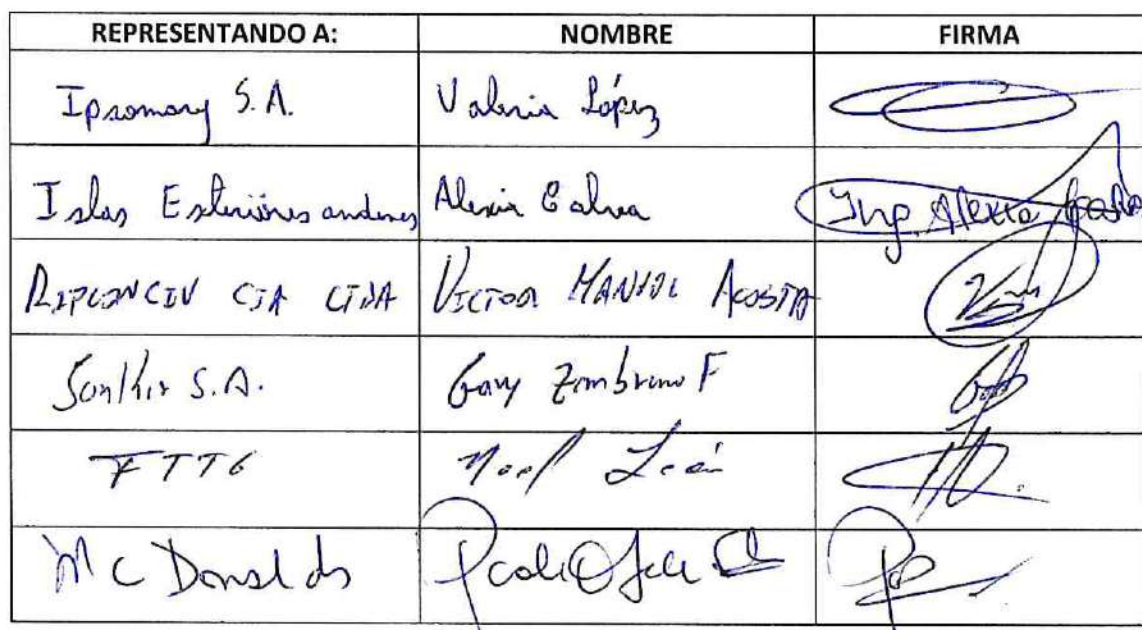 REPRESENTANDO A: NOMBRE FIRMA
Ipsomary S.A. Valeria López
Islas Exteriores andenes Alexia Ing. Alexia
RIPCONCIV CIA LTDA VICTOR MANUEL ACOSTA
S.A. Gary Zambrano F
FTTG Noel León
Mc Donalds